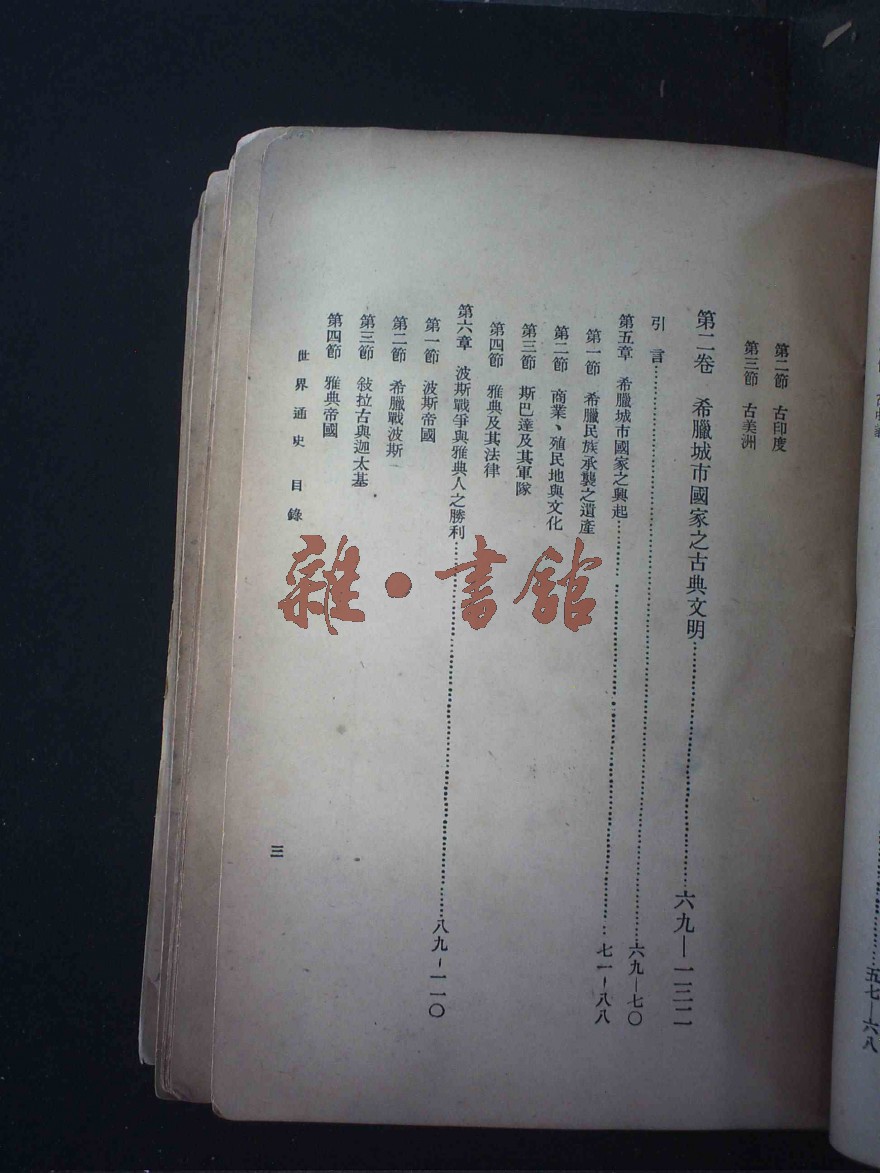 第二節 古印度
第三節 古美洲
第二卷 希臘城市國家之古典文明……六九—一二二
引言……六九—七〇
第五章 希臘城市國家之興起……七一-八八
第一節 希臘民族承襲之遺產
第二節 商業、殖民地與文化
第三節 斯巴達及其軍隊
第四節 雅典及其法律
第六章 波斯戰爭與雅典人之勝利……八九-一一〇
第一節 波斯帝國
第二節 希臘戰波斯
第三節 敍拉古與迦太基
第四節 雅典帝國
世界通史 目錄
三
雜·書館
五七—六八